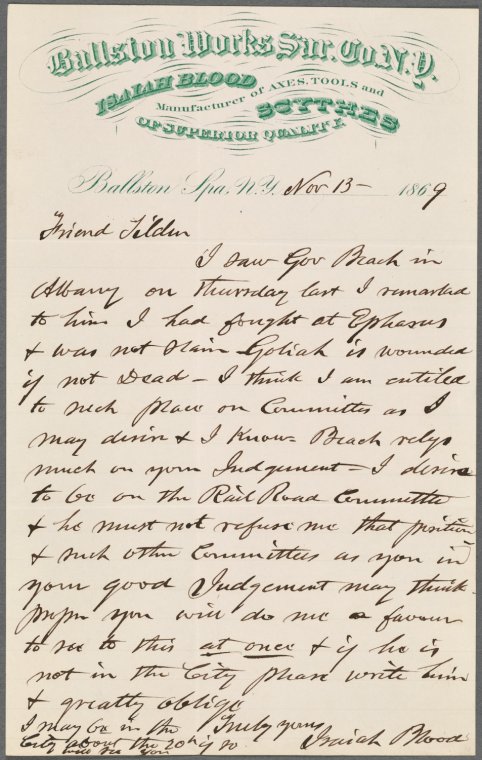 Ballston Works Sar. Co. N.Y.
ISAIAH BLOOD
Manufacturer of AXES, TOOLS and
SCYTHES
OF SUPERIOR QUALITY.
Ballston Spa, N.Y. Nov 13 - 1869
Friend Tilden
I saw Gov Beach in
Albany on Thursday last I remarked
to him I had fought at Ephasus
& was not slain - Goliah is wounded
if not Dead - I think I am entitled
to such place on Committes as I
may desire & I know Beach relys
much on your Judgement - I desire
to be on the Rail Road Committe
& he must not refuse me that position
& such other Committees as you in
your good Judgement may think
proper you will do me a favour
to see to this at once & if he is
not in the City please write him
& greatly oblige
Truly yours
Isaiah Blood
I may be in the
City about the 20th if so
will see you